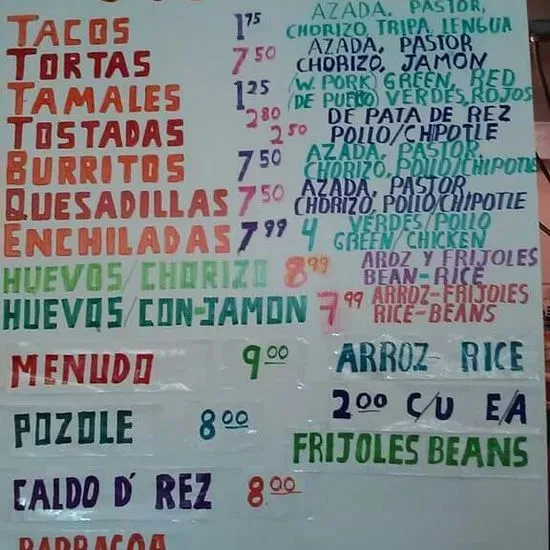 AZADA, PASTOR,
TACOS 1.75 CHORIZO, TRIPA, LENGUA
AZADA, PASTOR
TORTAS 7.50 CHORIZO, JAMÓN
(W. PORK) GREEN, RED
TAMALES 1.25 (DE PUERO) VERDES, ROJOS
2.80 DE PATA DE REZ
TOSTADAS 2.50 POLLO/CHIPOTLE
AZADA, PASTOR
BURRITOS 7.50 CHORIZO, POLLO/CHIPOTLE
AZADA, PASTOR
QUESADILLAS 7.50 CHORIZO, POLLO/CHIPOTLE
VERDES/POLLO
ENCHILADAS 7.99 4 GREEN/CHICKEN
AROZ Y FRIJOLES
HUEVOS/CHORIZO 8.99 BEAN-RICE
ARROZ-FRIJOLES
HUEVOS/CON-JAMON 7.99 RICE-BEANS
MENUDO 9.00 ARROZ- RICE
POZOLE 8.00 2.00 C/U E/A
FRIJOLES BEANS
CALDO D' REZ 8.00
BARBACOA